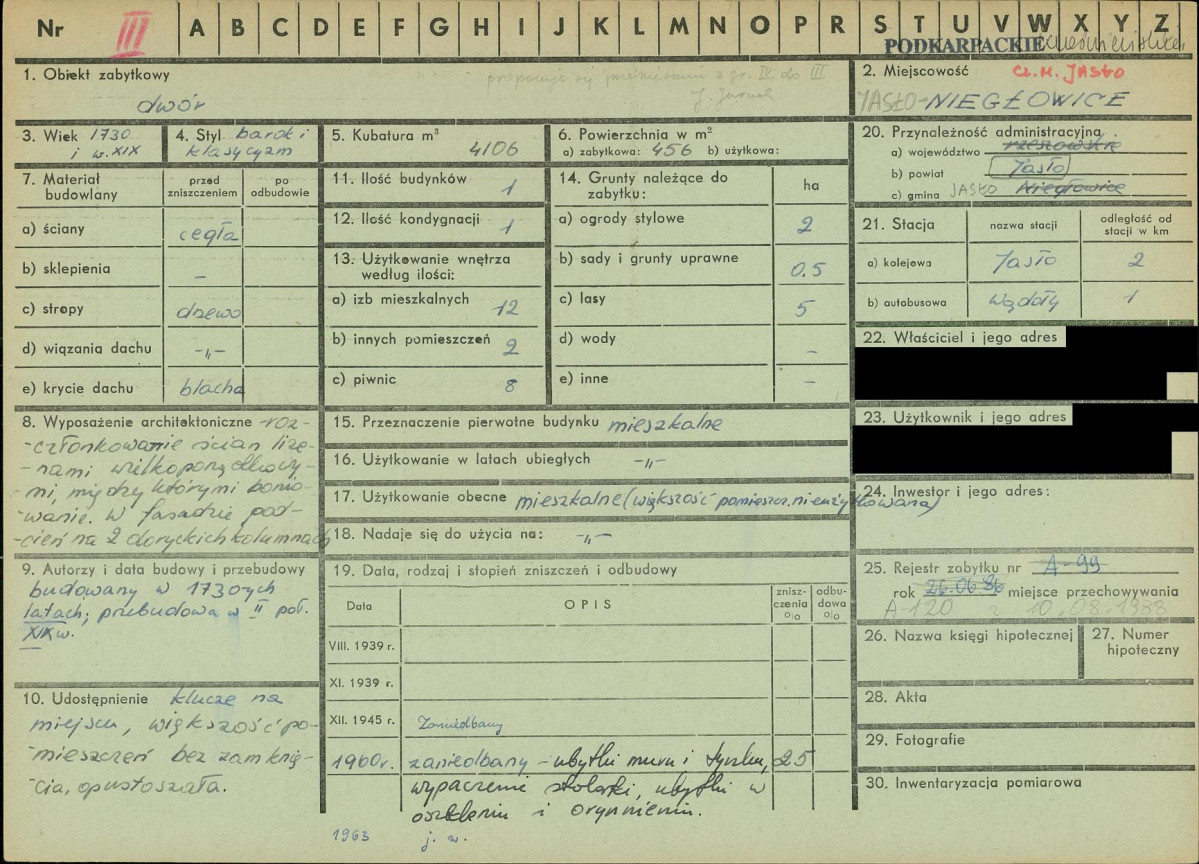 Nr III A B C D E F G H I J K L M N O P R S T U V W X Y Z
PODKARPACKIE
1. Obiekt zabytkowy
proponuje się przeniesienie z gr. IV do III
dwór
2. Miejscowość cz. m. JASŁO
JASŁO-NIEGŁOWICE
3. Wiek 1730
i w. XIX
4. Styl barok i
klasycyzm
5. Kubatura m³
4106
6. Powierzchnia w m²
a) zabytkowa: 456 b) użytkowa:
7. Materiał
budowlany
przed
zniszczeniem
po
odbudowie
a) ściany cegła
b) sklepienia –
c) stropy drzewo
d) wiązania dachu -„-
e) krycie dachu blacha
8. Wyposażenie architektoniczne -roz-
-członkowanie ścian lize-
-nami wielkoporządkowy-
mi, między którymi bonio-
-wanie. W fasadzie pod-
-cień na 2 doryckich kolumnach
9. Autorzy i data budowy i przebudowy
budowany w 1730tych
latach; przebudowa w II poł.
XIX w.
10. Udostępnienie klucze na
miejscu, większość po-
-mieszczeń bez zamknię-
-cia, opustoszała.
11. Ilość budynków 1
12. Ilość kondygnacji 1
13. Użytkowanie wnętrza
według ilości:
a) izb mieszkalnych 12
b) innych pomieszczeń 2
c) piwnic 8
14. Grunty należące do
zabytku:
ha
a) ogrody stylowe 2
b) sady i grunty uprawne 0.5
c) lasy 5
d) wody –
e) inne –
15. Przeznaczenie pierwotne budynku mieszkalne
16. Użytkowanie w latach ubiegłych -„-
17. Użytkowanie obecne mieszkalne (większość pomieszcz. nieużytkowana)
18. Nadaje się do użycia na: -„-
19. Data, rodzaj i stopień zniszczeń i odbudowy
Data
OPIS
znisz-
czenia
%
odbu-
dowa
%
VIII. 1939 r.
XI. 1939 r.
XII. 1945 r. Zaniedbany
1960r. zaniedbany – ubytki muru i tynku, 25
wypaczenie stolarki, ubytki w
oszkleniu i orynnieniu.
1963 j. w.
20. Przynależność administracyjna
a) województwo rzeszowskie
b) powiat Jasło
c) gmina JASŁO Niegłowice
21. Stacja
nazwa stacji
odległość od
stacji w km
a) kolejowa Jasło 2
b) autobusowa wądoły 1
22. Właściciel i jego adres
23. Użytkownik i jego adres
24. Inwestor i jego adres:
25. Rejestr zabytku nr A-99
rok 26.06.86 miejsce przechowywania
A-120 z 10.08.1988
26. Nazwa księgi hipotecznej
27. Numer
hipoteczny
28. Akta
29. Fotografie
30. Inwentaryzacja pomiarowa